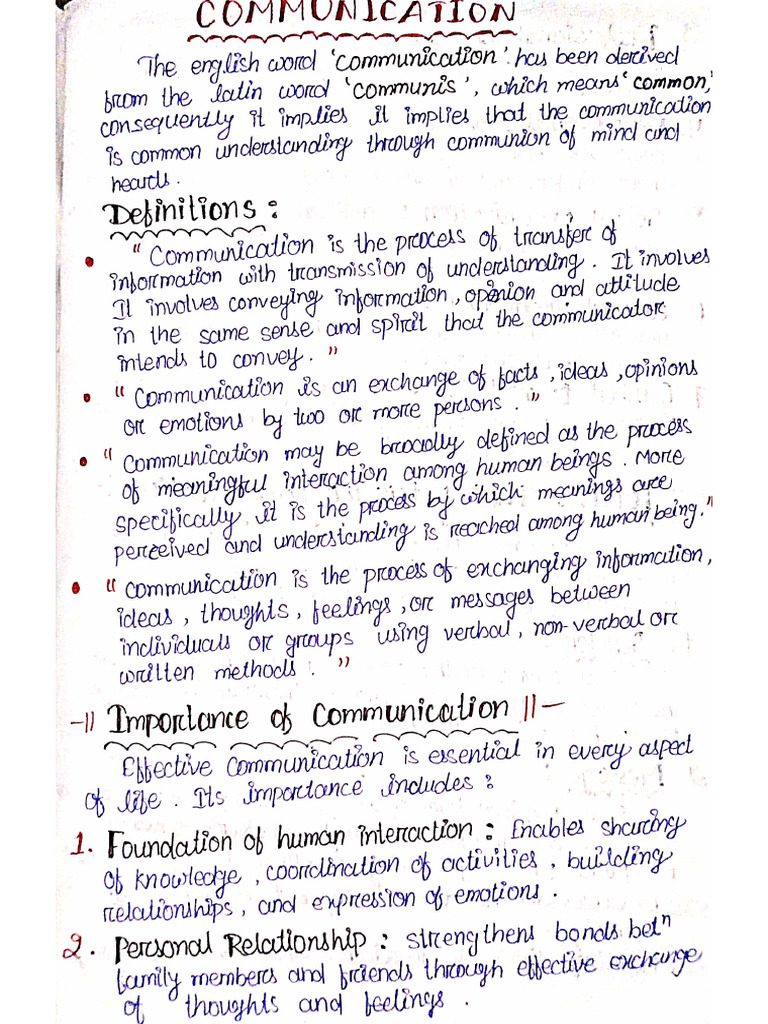 COMMUNICATION
The english word 'communication' has been derived
from the latin word 'communis', which means 'common,'
consequently it implies it implies that the communication
is common understanding through communion of mind and
hearts.
Definitions:
• "Communication is the process of transfer of
information with transmission of understanding. It involves
It involves conveying information, openion and attitude
in the same sense and spirit that the communicator
intends to convey."
• "Communication is an exchange of facts, ideas, opinions
or emotions by two or more persons."
• "Communication may be broadly defined as the process
of meaningful interaction among human beings. More
specifically it is the process by which meanings are
perceived and understanding is reached among human being."
• "Communication is the process of exchanging information,
ideas, thoughts, feelings, or messages between
individuals or groups using verbal, non-verbal or
written methods."
-|| Importance of Communication ||-
Effective Communication is essential in every aspect
of life. Its importance includes:
1. Foundation of human interaction: Enables sharing
of knowledge, coordination of activities, building
relationships, and expression of emotions.
2. Personal Relationship: strengthens bonds betⁿ
family members and friends through effective exchange
of thoughts and feelings.